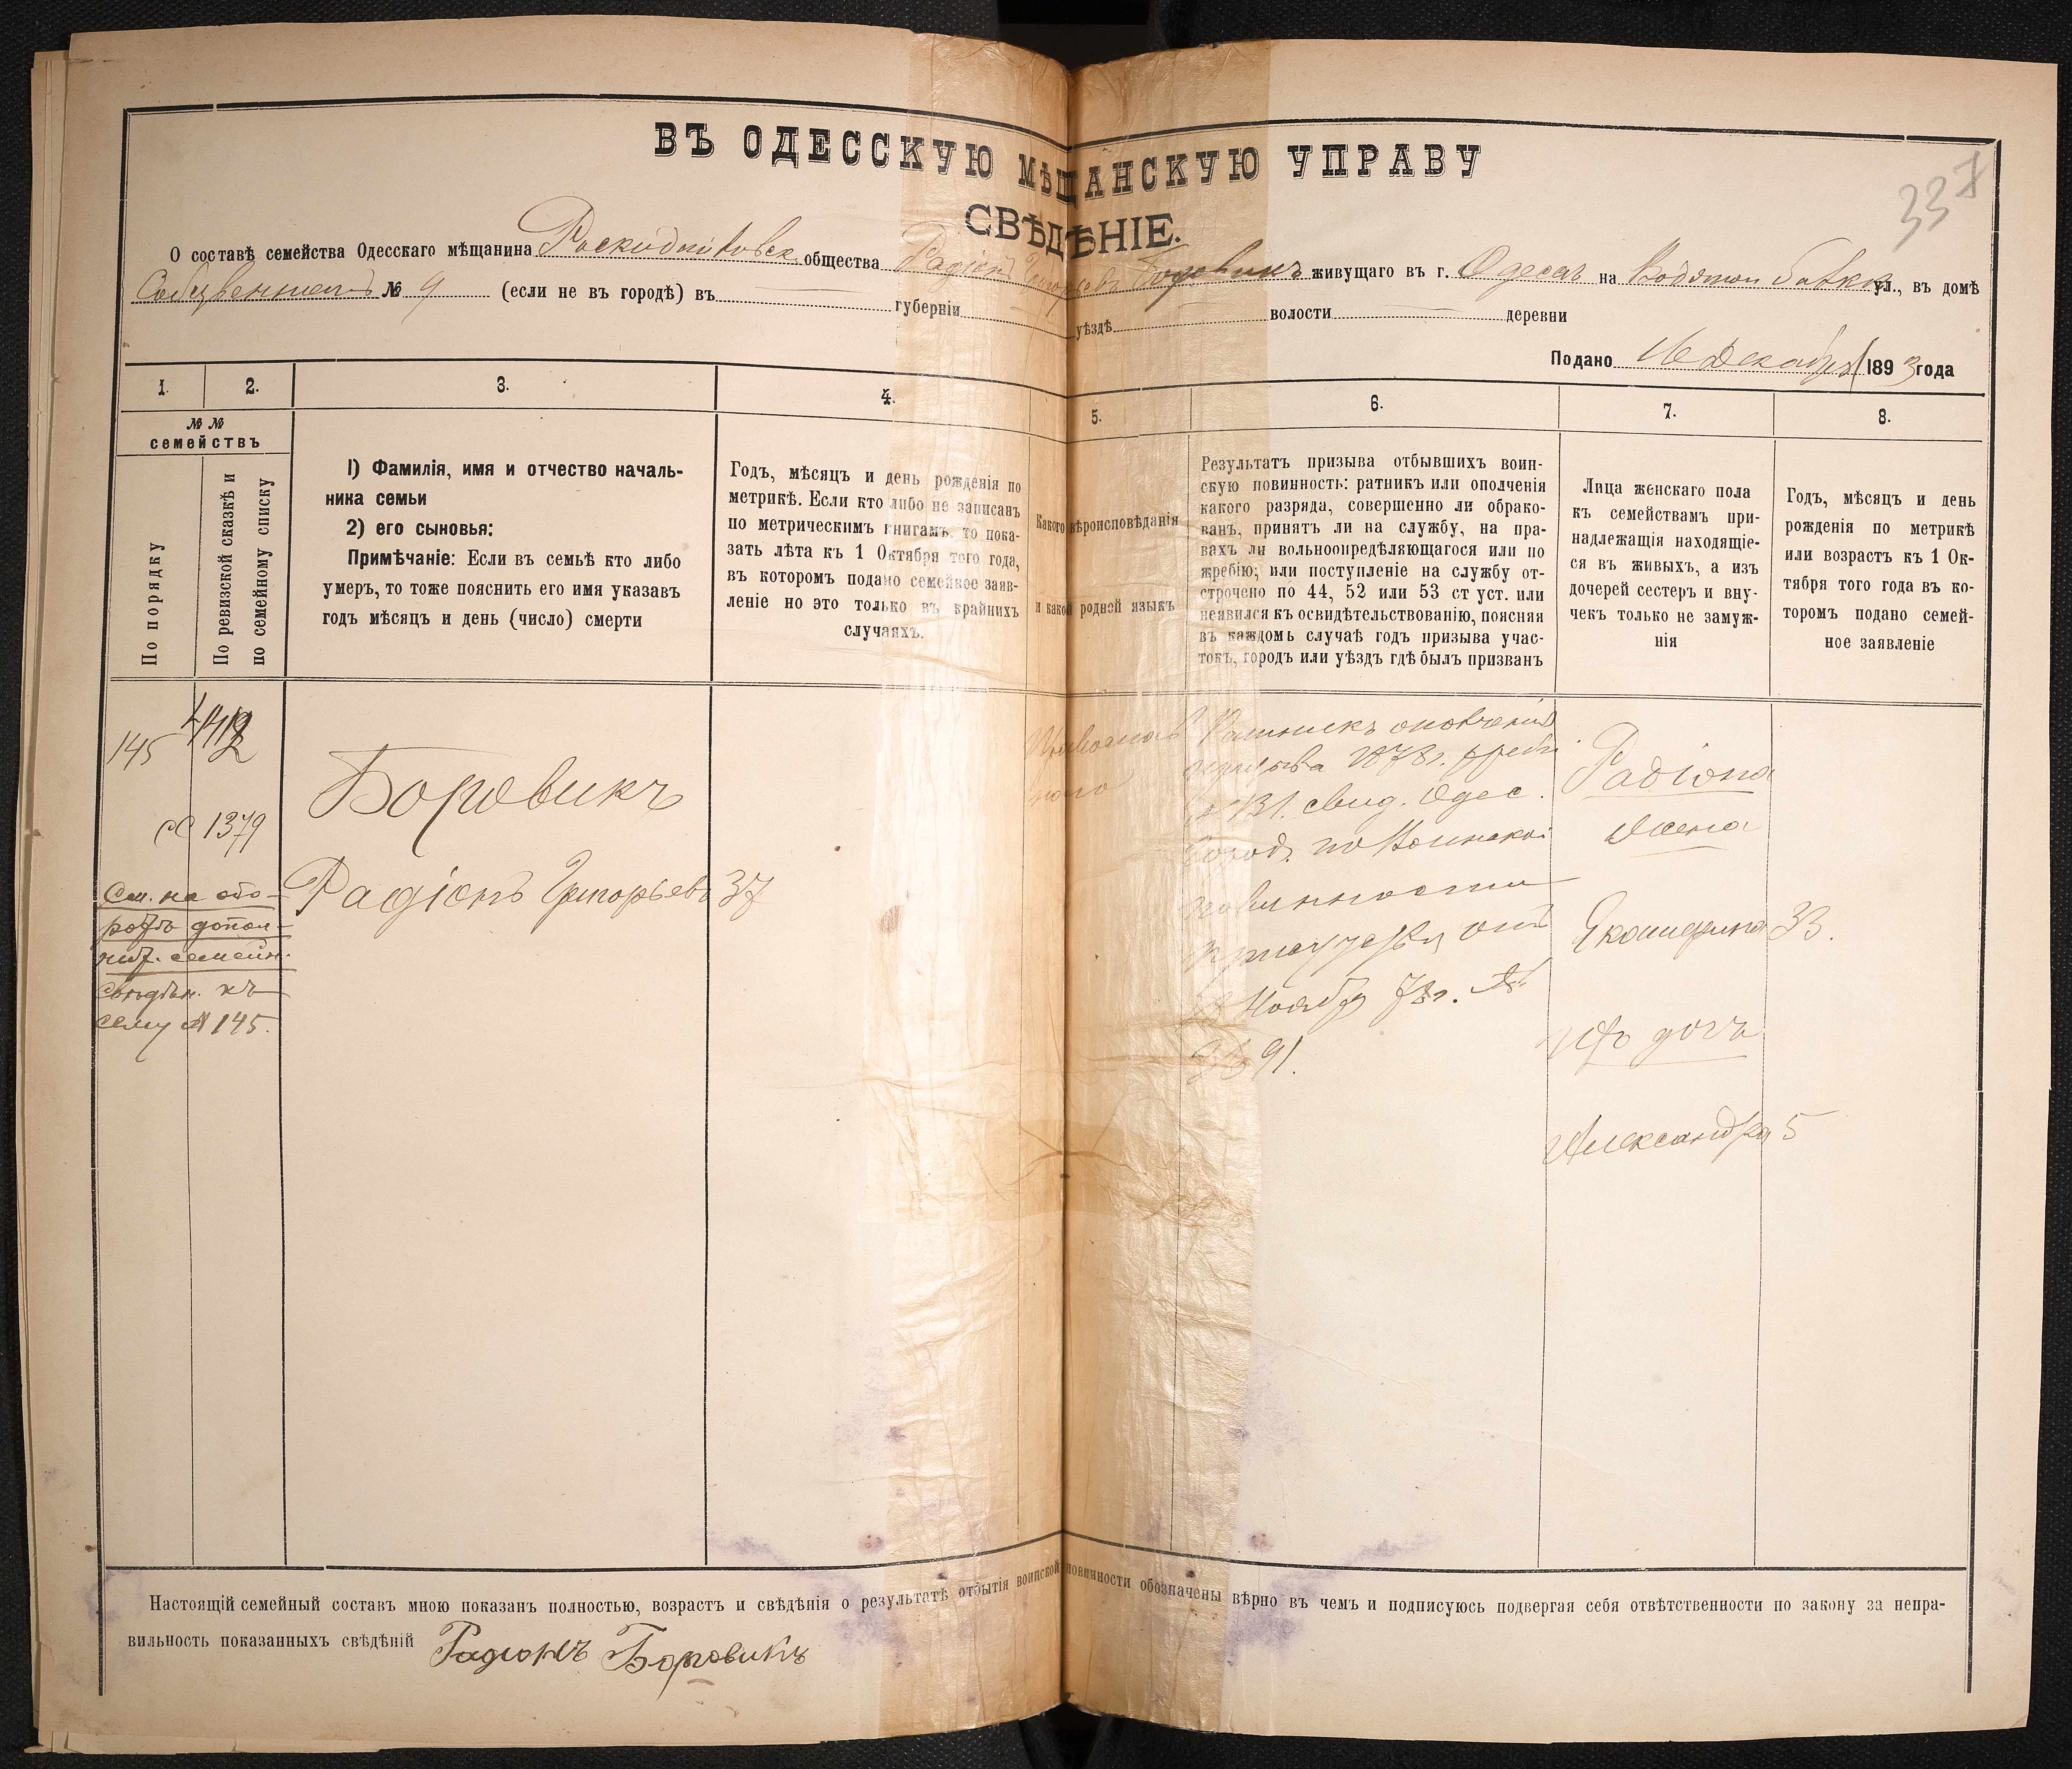 ВЪ ОДЕССКУЮ МѢЩАНСКУЮ УПРАВУ
337
СВѢДѢНІЕ.
О составѣ семейства Одесскаго мѣщанина общества Радіонъ Григорьевъ Боровикъ живущаго въ г. Одессѣ на Водяной балкѣ ул., въ домѣ
№ 9 (если не въ городѣ) въ губерніи уѣздѣ волости деревни
Подано 16 Декабря 1893 года
1. 2. 3. 4. 5. 6. 7. 8.
№ №
семействъ
По порядку
По ревизской сказкѣ и
по семейному списку
1) Фамилія, имя и отчество началь-
ника семьи
2) его сыновья:
Примѣчаніе: Если въ семьѣ кто либо
умеръ, то тоже пояснить его имя указавъ
годъ мѣсяцъ и день (число) смерти
Годъ, мѣсяцъ и день рожденія по
метрикѣ. Если кто либо не записанъ
по метрическимъ книгамъ, то пока-
зать лѣта къ 1 Октября того года,
въ которомъ подано семейное заяв-
леніе но это только въ крайнихъ
случаяхъ.
Какого вѣроисповѣданія
и какой родной языкъ
Результатъ призыва отбывшихъ воин-
скую повинность: ратникъ или ополченія
какого разряда, совершенно ли обрако-
ванъ, принятъ ли на службу, на пра-
вахъ ли вольноопредѣляющагося или по
жребію; или поступленіе на службу от-
строчено по 44, 52 или 53 ст уст. или
неявился къ освидѣтельствованію, поясняя
въ каждомь случаѣ годъ призыва учас-
токъ, городъ или уѣздъ гдѣ былъ призванъ
Лица женскаго пола
къ семействамъ при-
надлежащія находящіе-
ся въ живыхъ, а изъ
дочерей сестеръ и вну-
чекъ только не замуж-
нія
Годъ, мѣсяцъ и день
рожденія по метрикѣ
или возрастъ къ 1 Ок-
тября того года въ ко-
торомъ подано семей-
ное заявленіе
145
1379
Боровикъ
Радіонъ Григорьевъ 37
См. на обо-
ротѣ допол-
нит. семейн.
свѣдѣн. къ
сему № 145.
Православ
наго
Ратникъ ополченія
призыва 1878 г.
131. свид. Одес.
город. по Воинской
повинности
присутствія отъ
Ноября 78 г. №
91.
Радіона
жена
Екатерина 33.
ихъ дочь
Александра 5
Настоящій семейный составъ мною показанъ полностью, возрастъ и свѣдѣнія о результатѣ отбытія воинской повинности обозначены вѣрно въ чемъ и подписуюсь подвергая себя отвѣтственности по закону за непра-
вильность показанныхъ свѣдѣній Радионъ Боровикъ